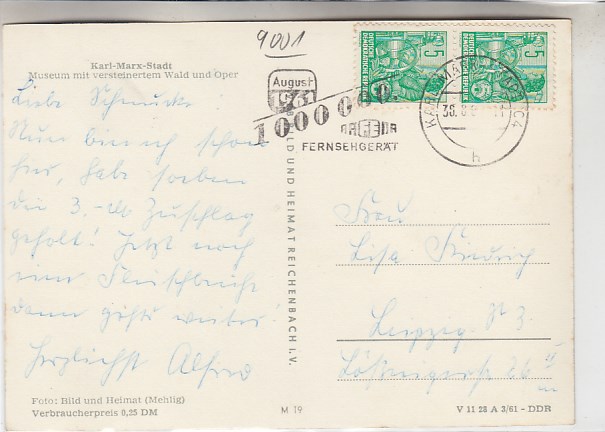 9001
Karl-Marx-Stadt
Museum mit versteinertem Wald und Oper
Liebe Schmucke!
Nun bin ich schon
hier, habe soeben
die 3,- Zuschlag
geholt! Jetzt noch
eine
dann gehts weiter!
Herzlichst Alfred
Foto: Bild und Heimat (Mehlig)
Verbraucherpreis 0,25 DM
August
1000000
FERNSEHGERÄT
5
DEUTSCHE DEMOKRATISCHE REPUBLIK
5
DEUTSCHE DEMOKRATISCHE REPUBLIK
KARL-MARX-STADT C4
h
BILD UND HEIMAT REICHENBACH I. V.
M 19
Frau
Lisa
Leipzig N 3
V 11 28 A 3/61 - DDR